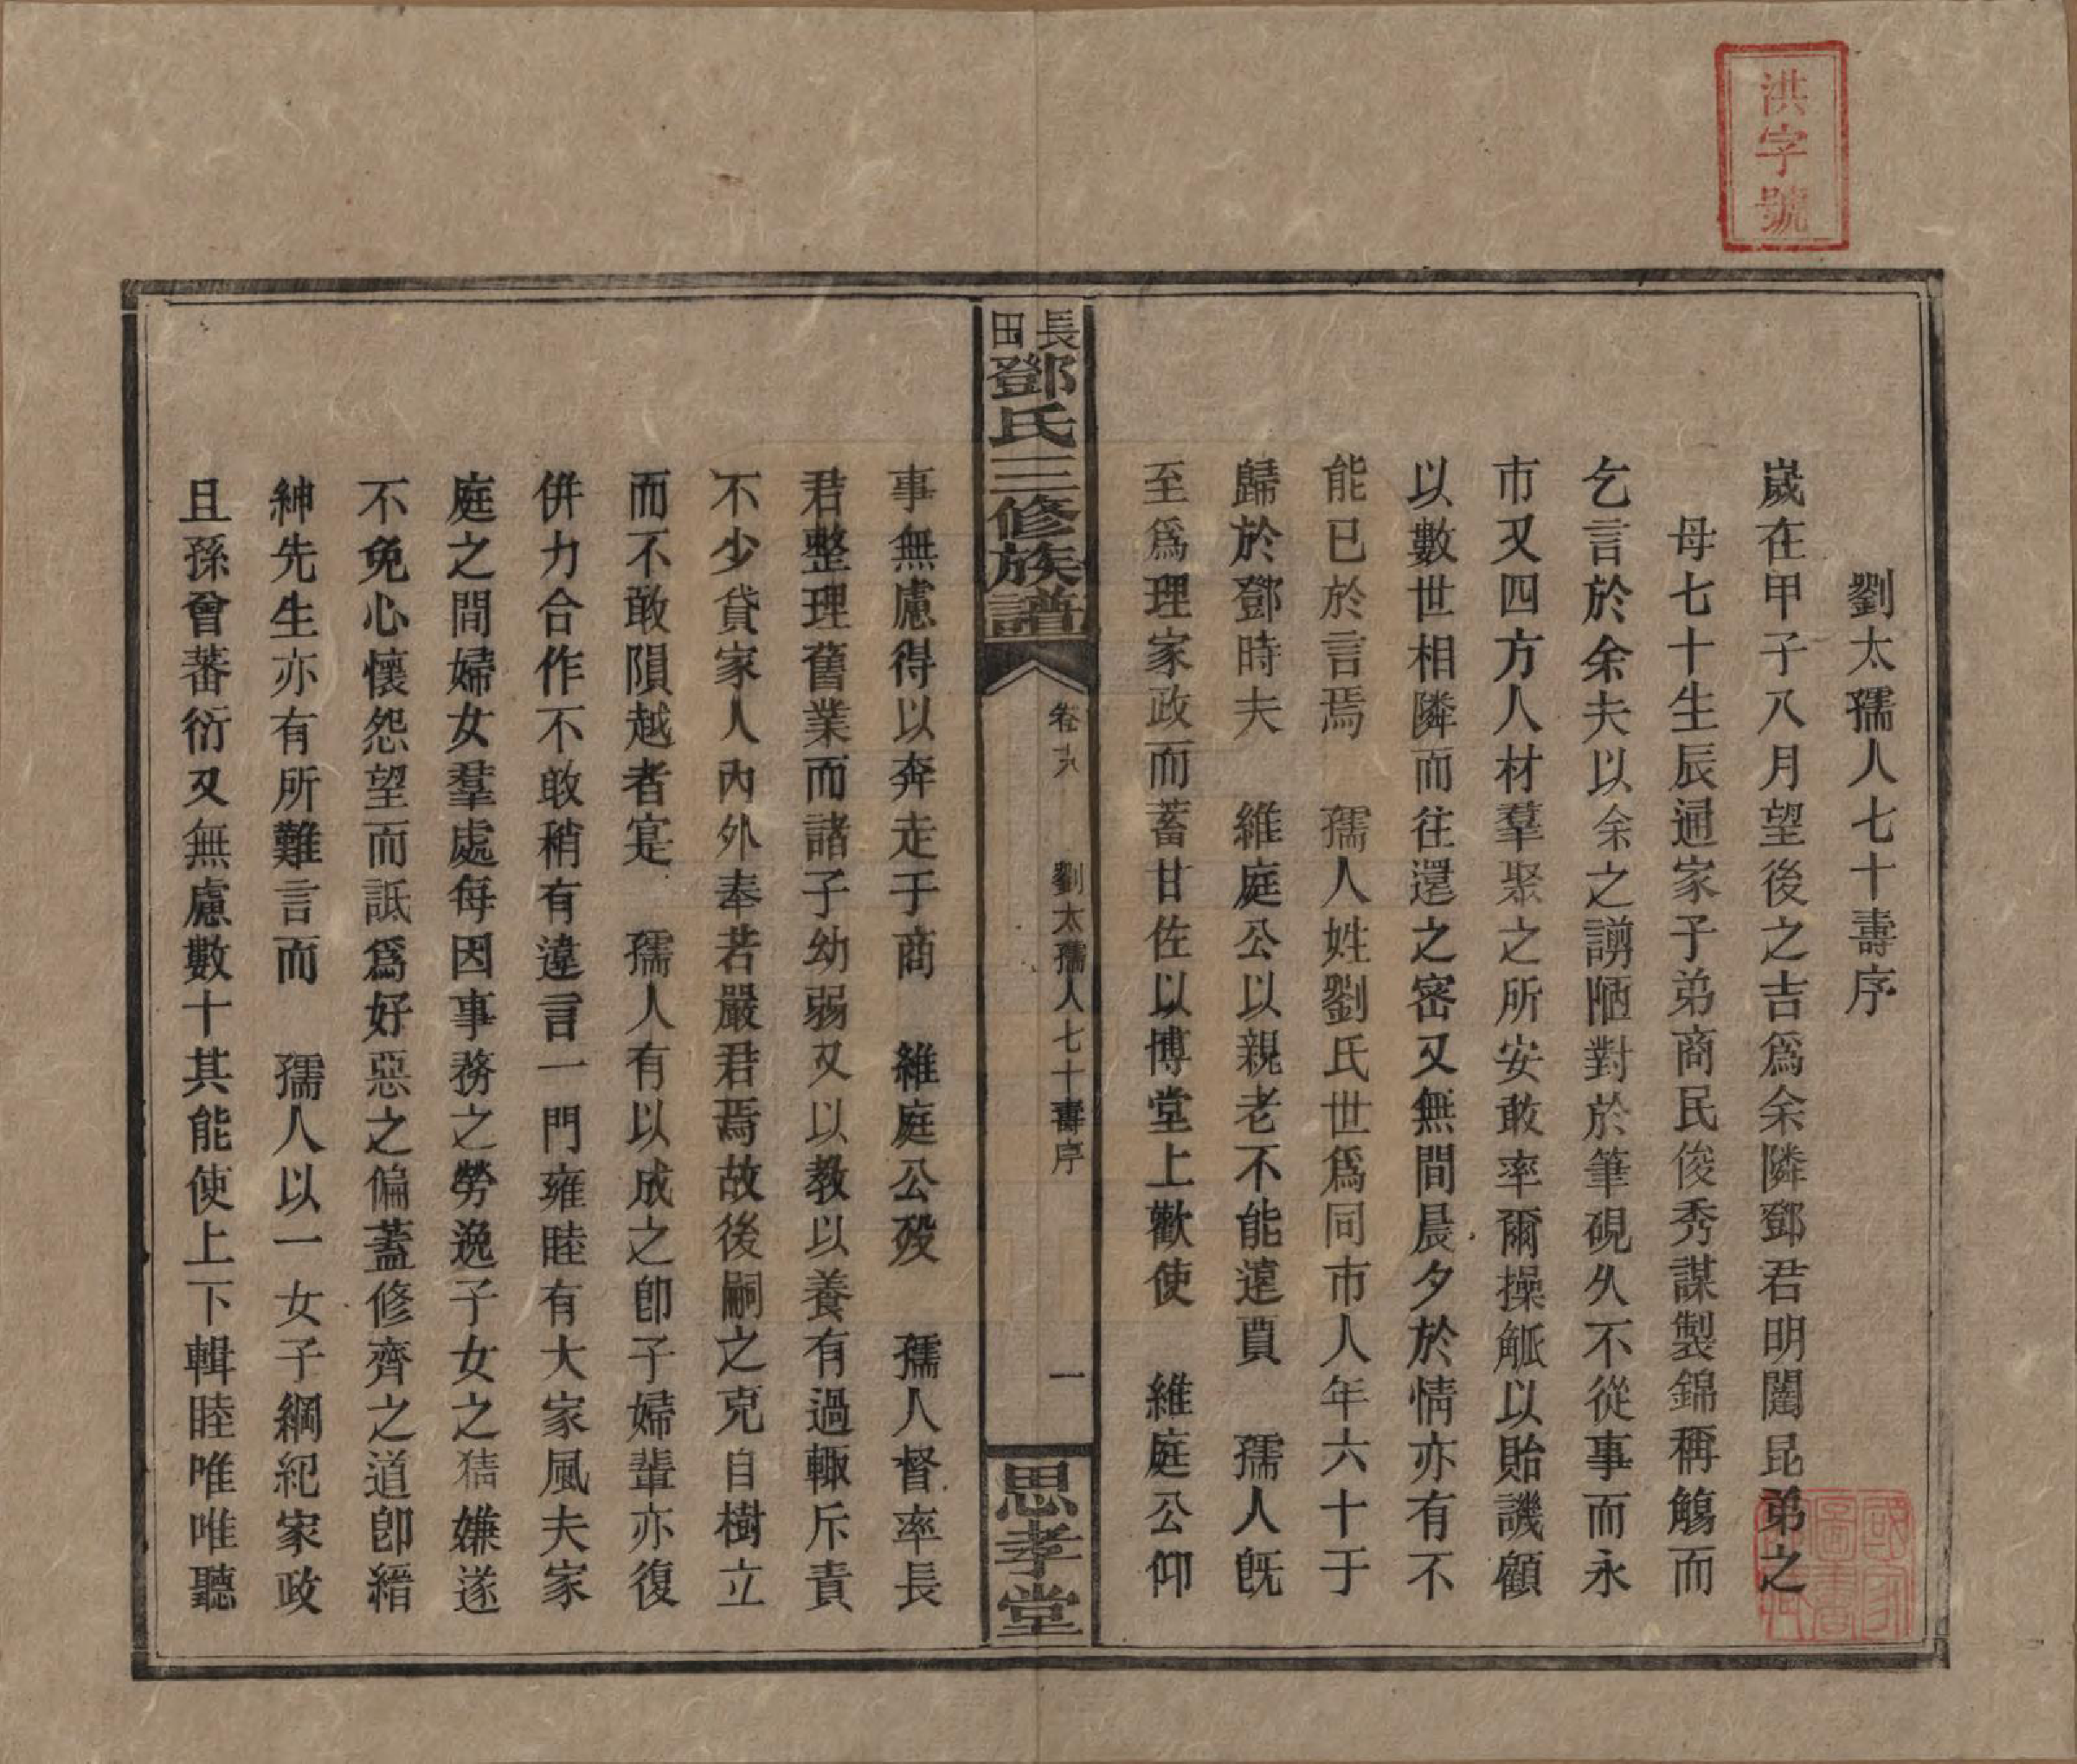 洪字號
劉太孺人七十壽序
歲在甲子八月望後之吉爲余隣鄧君明闓昆弟之
母七十生辰通家子弟商民俊秀謀製錦稱觴而
乞言於余夫以余之謭陋對於筆硯久不從事而永
市又四方人材羣聚之所安敢率爾操觚以貽譏顧
以數世相隣而往還之密又無間晨夕於情亦有不
能已於言焉　孺人姓劉氏世爲同市人年六十于
歸於鄧時夫　維庭公以親老不能遠賈　孺人旣
至爲理家政而蓄甘佐以博堂上歡使　維庭公仰
長田鄧氏三修族譜
卷
劉太孺人七十壽序
一
思孝堂
事無慮得以奔走于商　維庭公歿　孺人督率長
君整理舊業而諸子幼弱又以教以養有過輙斥責
不少貸家人內外奉若嚴君焉故後嗣之克自樹立
而不敢隕越者寔　孺人有以成之卽子婦輩亦復
併力合作不敢稍有違言一門雍睦有大家風夫家
庭之間婦女羣處每因事務之勞逸子女之猜嫌遂
不免心懷怨望而詆爲好惡之偏蓋修齊之道卽縉
紳先生亦有所難言而　孺人以一女子綱紀家政
且孫曾蕃衍又無慮數十其能使上下輯睦唯唯聽